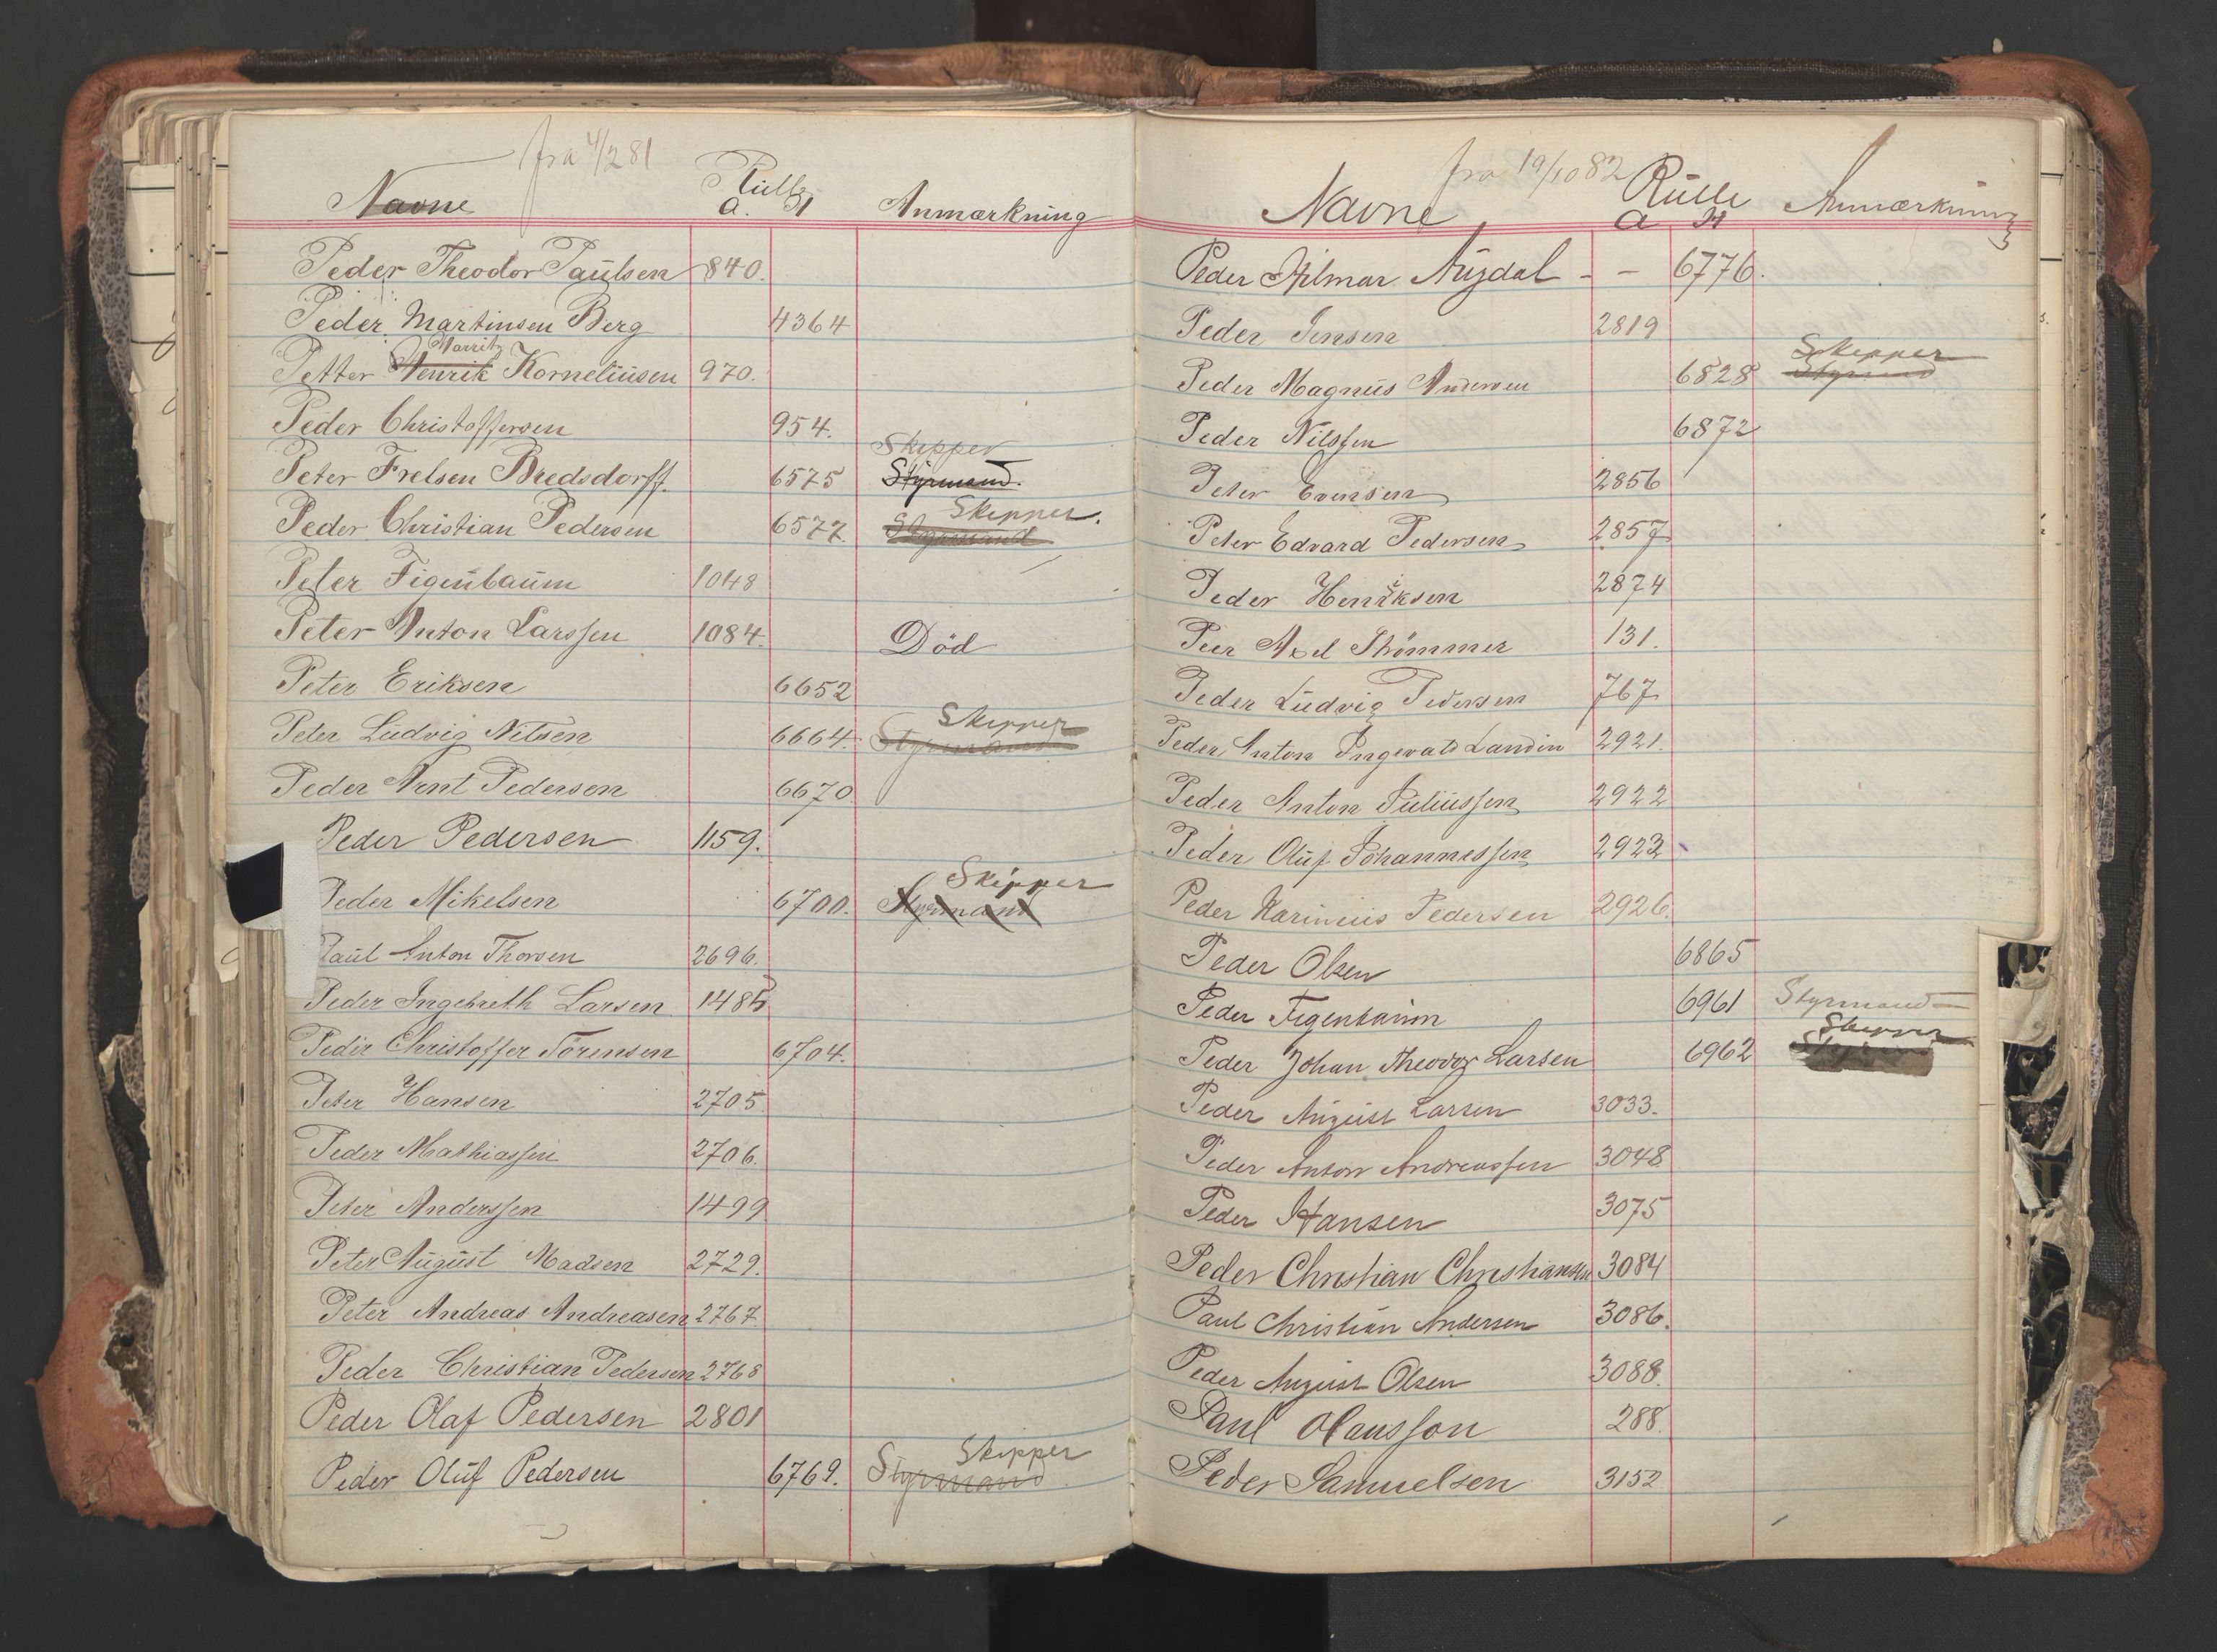 fra 4/2 81
Navne Rulle Anmærkning
a. H
Peder Theodor Paulsen 840.
Peder Martinsen Berg 4364
Mauritz
Petter Henrik Korneliusen 970.
Peder Christoffersen 954.
Skipper
Peter Frelsen Bredsdorff. 6575 Styrmand.
Skipper.
Peder Christian Pedersen 6577. Styrmand
Peter Figenbaum 1048
Peter Anton Larssen 1084. Död
Peter Eriksen 6652
Skipper
Peter Ludvig Nilsen 6664. Styrmand
Peder Arnt Pedersen 6670
Peder Pedersen 1159.
Skipper
Peder Mikelsen 6700. Styrmand
Paul Anton Thorsen 2696.
Peder Ingebreth Larsen 1485
Peder Christoffer Sörensen 6704.
Peter Hansen 2705
Peder Mathiassen 2706.
Peter Anderssen 1499
Peter August Madsen 2729.
Peter Andreas Andreasen 2767
Peder Christian Pedersen 2768
Peder Olaf Pedersen 2801
Skipper
Peder Oluf Pedersen 6769. Styrmand
fra 19/10 82
Navne Rulle Anmærkning
a H
Peder Hilmar Augdal - - 6776.
Peder Jensen 2819
Skipper
Peder Magnus Andersen 6828 Styrmand
Peder Nilssen 6872
Peter Evensen 2856
Peter Edvard Pedersen 2857
Peder Henriksen 2874
Peer Axel Thömmer 131.
Peder Ludvig Pedersen 767
Peder Anton Ingevald Landin 2921.
Peder Anton Juliussen 2922
Peder Oluf Johannessen 2923
Peder Karinius Pedersen 2926.
Peder Olsen 6865
Peder Figenbaum 6961 Styrmand
Skipper
Peder Johan Theodor Larsen 6962 Styrmand
Peder August Larsen 3033.
Peder Anton Andreassen 3048
Peder Hansen 3075
Peder Christian Christiansen 3084
Paul Christian Andersen 3086.
Peder August Olsen 3088.
Paul Olausson 288.
Peder Samuelsen 3152